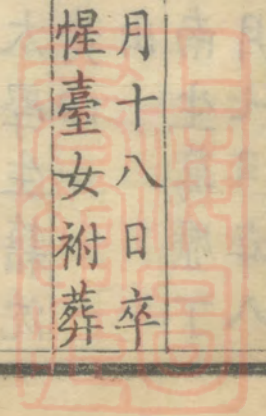 月十八日卒
惺臺女祔葬